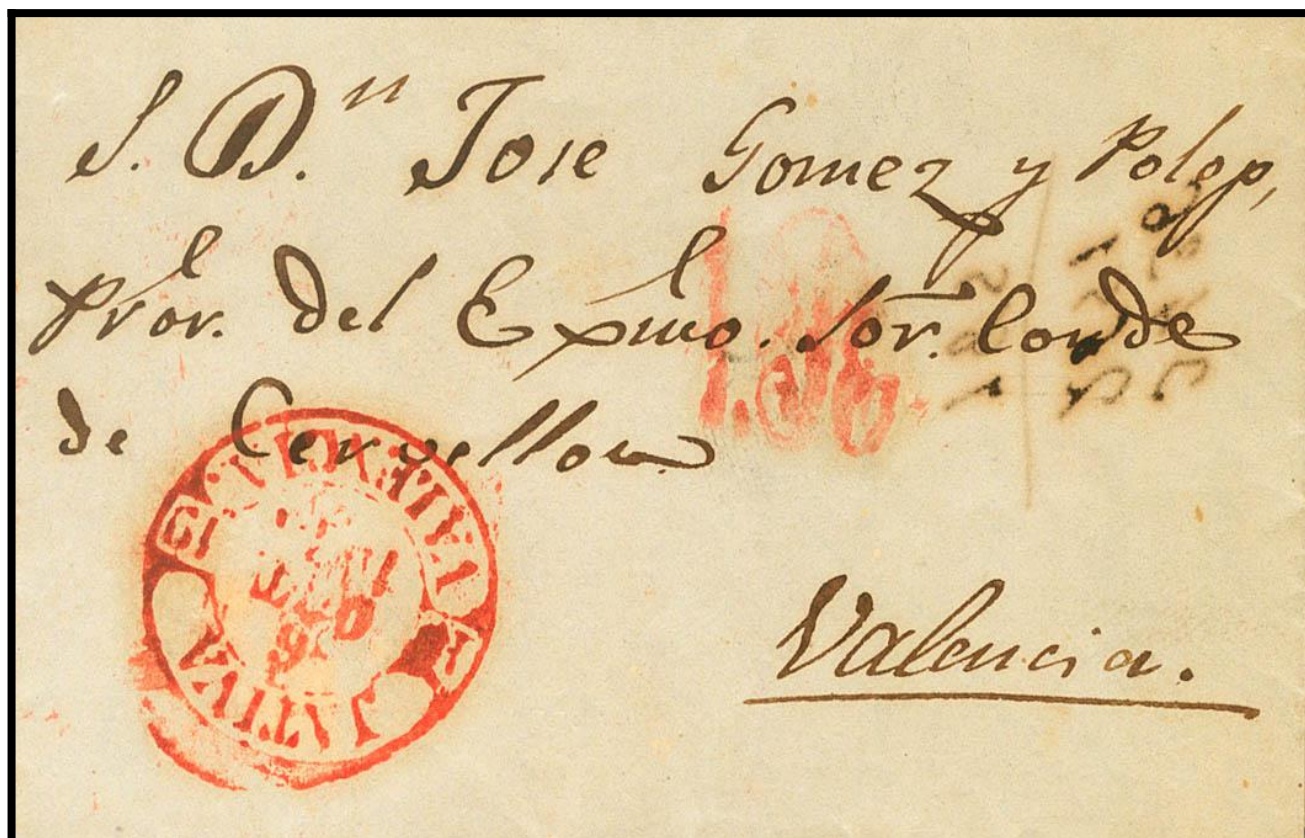 S. Dn Jose Gomez y Polop,
Pror. del Exmo. Sor. Conde
de Cervellon
Valencia.
JATIVA